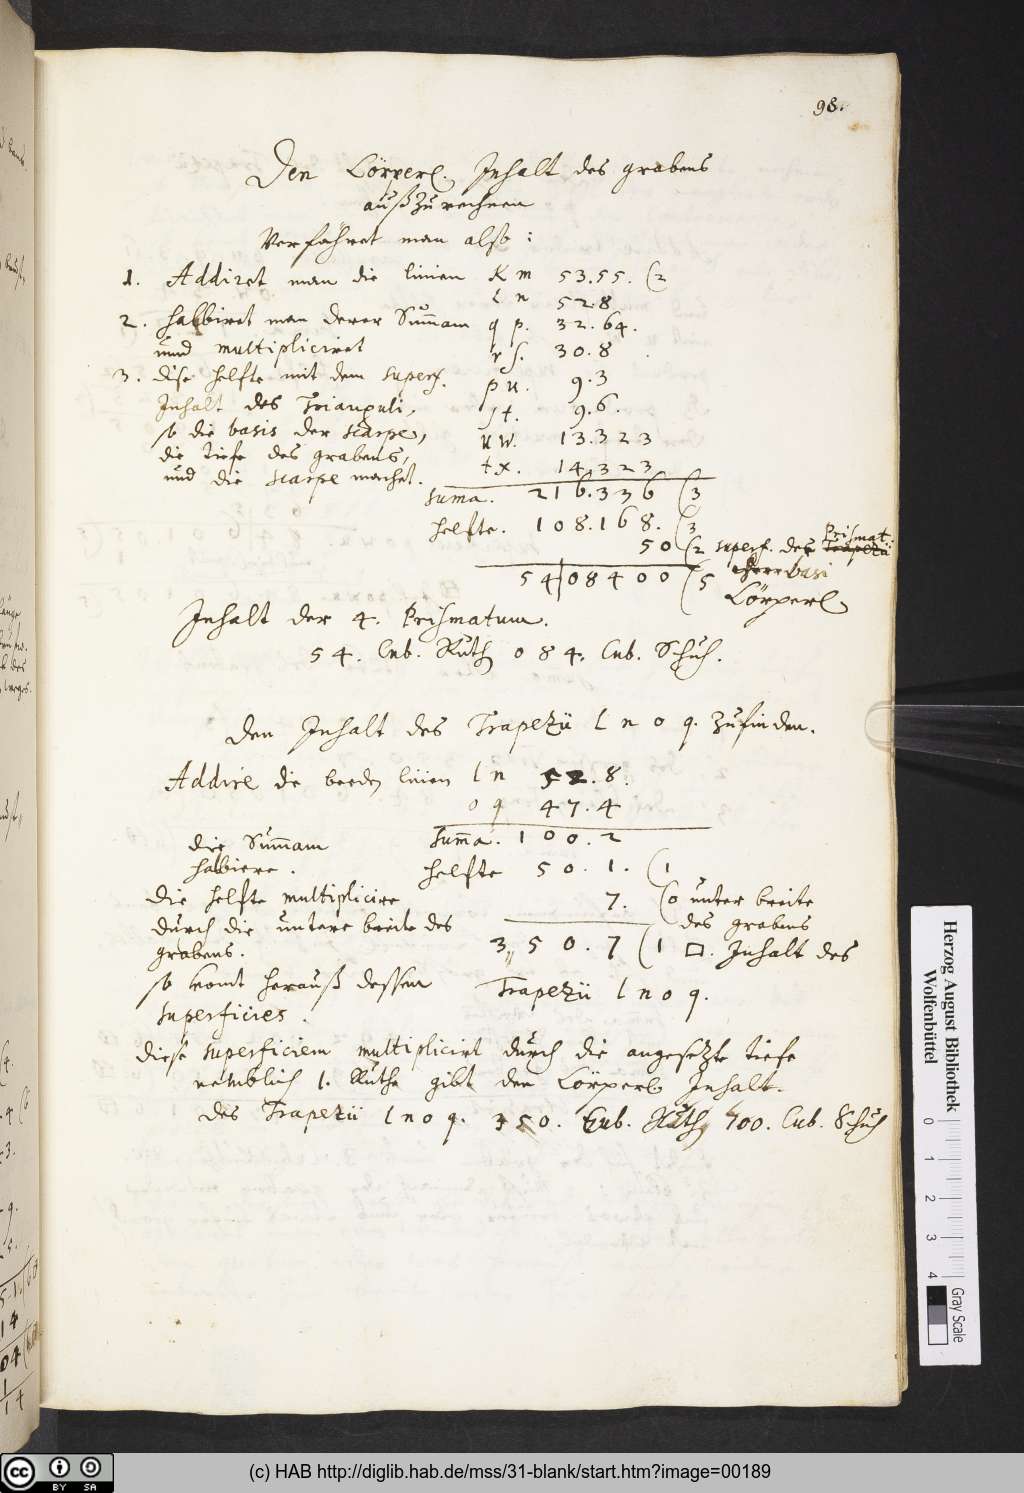 98.
Den Cörperl. Inhalt des grabens
außzurechnen
Verfähret man also :
1. Addiret man die linien K m 53.55. (2
l n 528
2. halbiret man derer Summam q p. 32.64.
unnd multipliciret r s. 30.8
3. dise helfte mit dem superf. p u. 9.3
Inhalt des Trianguli, s t. 9.6.
so die basis der scarpe, u w. 13.323
die tiefe des grabens, t x. 14,323
und die scarpe machet.
suma. 216.336 (3
helfte. 108.168. (3
50 (2 superf. der Prismat: Trapezü
54|08400 (5 basi
Cörperl.
Inhalt der 4. Prismatum.
54. Cub. Ruth 084. Cub. Schuh.
Den Inhalt des Trapezii l n o q. zufinden.
Addire die beeden linien l n 52.8.
o q 47.4
die Summam summa. 100.2
halbiere. helfte 50.1. (1
die helfte multiplicire 7. (0 unter breite
durch die untere breite des des grabens
grabens. 3,,50.7 (1 □. Inhalt des
so komt herauß dessen Trapezii l n o q.
superficies.
Diese superficiem multiplicirt durch die angesetzte tiefe
nemblich 1. Ruthe gibt den Cörperl. Inhalt.
des Trapezii l n o q. 350. Cub. Ruth 700. Cub. Schuh
Herzog August Bibliothek
Wolfenbüttel
0 1 2 3 4
Gray Scale
cc BY SA
(c) HAB http://diglib.hab.de/mss/31-blank/start.htm?image=00189